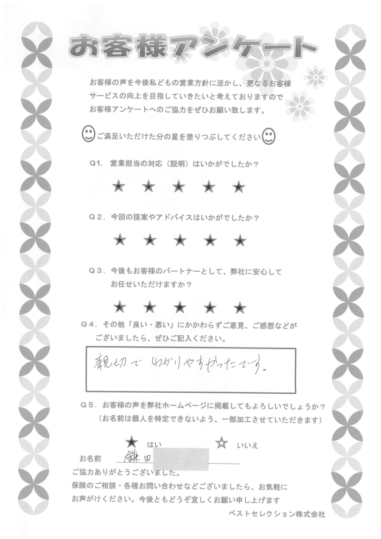 お客様アンケート
お客様の声を今後私どもの営業方針に活かし、更なるお客様
サービスの向上を目指していきたいと考えておりますので
お客様アンケートへのご協力をぜひお願い致します。
ご満足いただけた分の星を塗りつぶしてください
Q1. 営業担当の対応(説明)はいかがでしたか?
★ ★ ★ ★ ★
Q2. 今回の提案やアドバイスはいかがでしたか?
★ ★ ★ ★ ★
Q3. 今後もお客様のパートナーとして、弊社に安心して
お任せいただけますか?
★ ★ ★ ★ ★
Q4. その他「良い・悪い」にかかわらずご意見、ご感想などが
ございましたら、ぜひご記入ください。
親切で わかりやすかったです。
Q5. お客様の声を弊社ホームページに掲載してもよろしいでしょうか?
(お名前は個人を特定できないよう、一部加工させていただきます)
★ はい ☆ いいえ
お名前 鎌田
ご協力ありがとうございました。
保険のご相談・各種お問い合わせなどございましたら、お気軽に
お声がけください。今後ともどうぞ宜しくお願い申し上げます
ベストセレクション株式会社